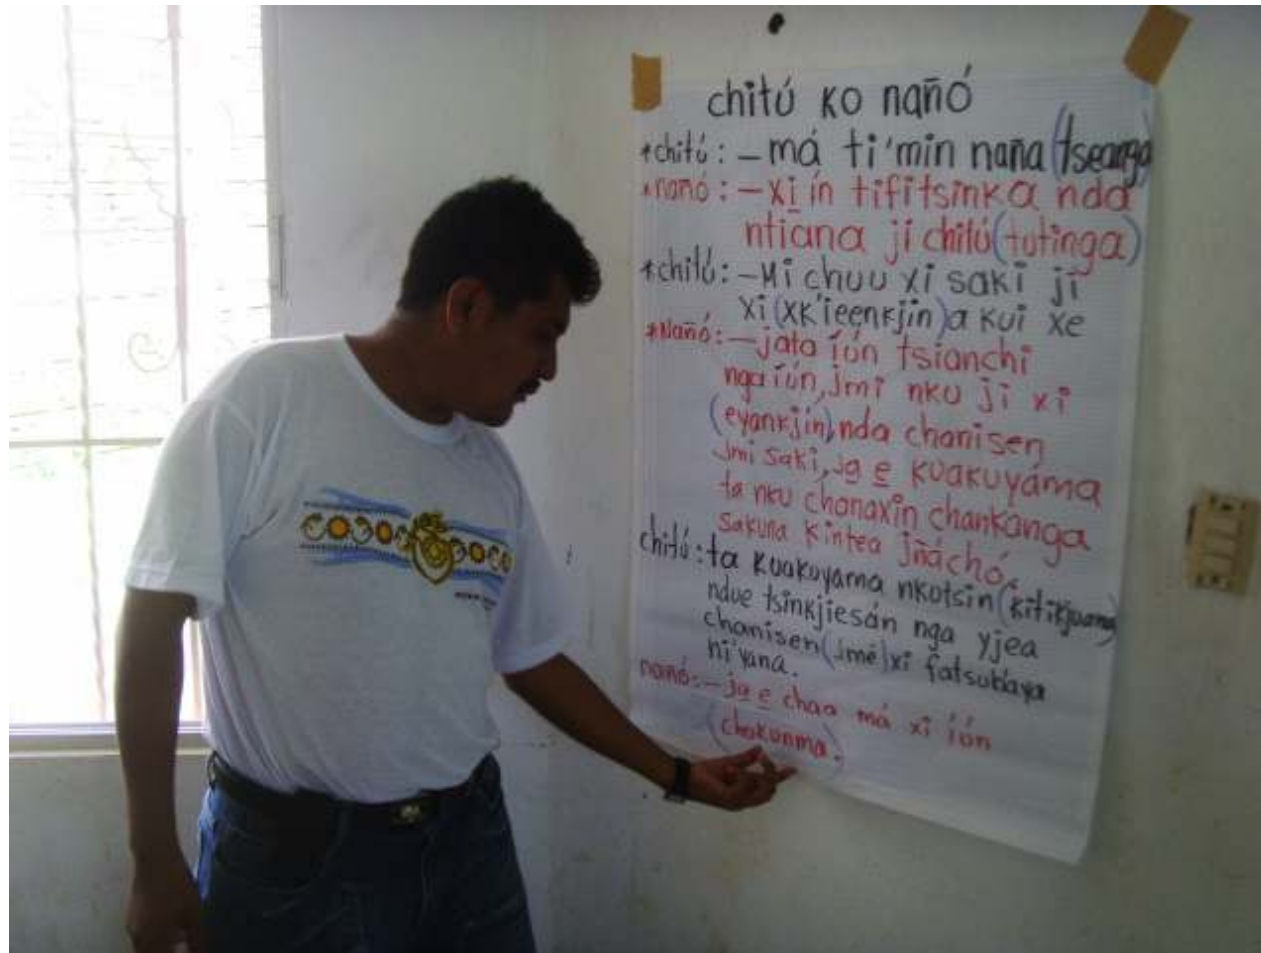 chitú ko nañó
*chitú: – má ti'min naña (tseanga)
*nañó: – xi ín tifitsinka nda
ntiana ji chitú (tutinga)
*chitú: – Mi chuu xi saki ji
xi (xk'ieenkjin) a kui xe
*Nañó: – jata íún tsianchi
nga íún, jmi nku ji xi
(eyankjín), nda chanisen
jmi saki, ja e kuakuyáma
ta nku chonaxin chankanga
sakuna kintea jñáchó.
chitú: ta kuakuyama nkotsin (kitikjuama)
ndue tsinkjiesán nga yjea
chanisen (jmé) xi fatsubaya
ni'yana.
nañó: – ja e chaa má xi íún
(chakunma.)